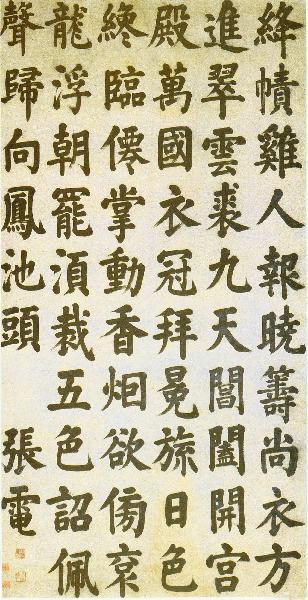 絳幘雞人報曉籌尚衣方
進翠雲裘九天閶闔開宮
殿萬國衣冠拜冕旒日色
纔臨僊掌動香烟欲傍衮
龍浮朝罷湏裁五色詔佩
聲歸向鳳池頭 張電